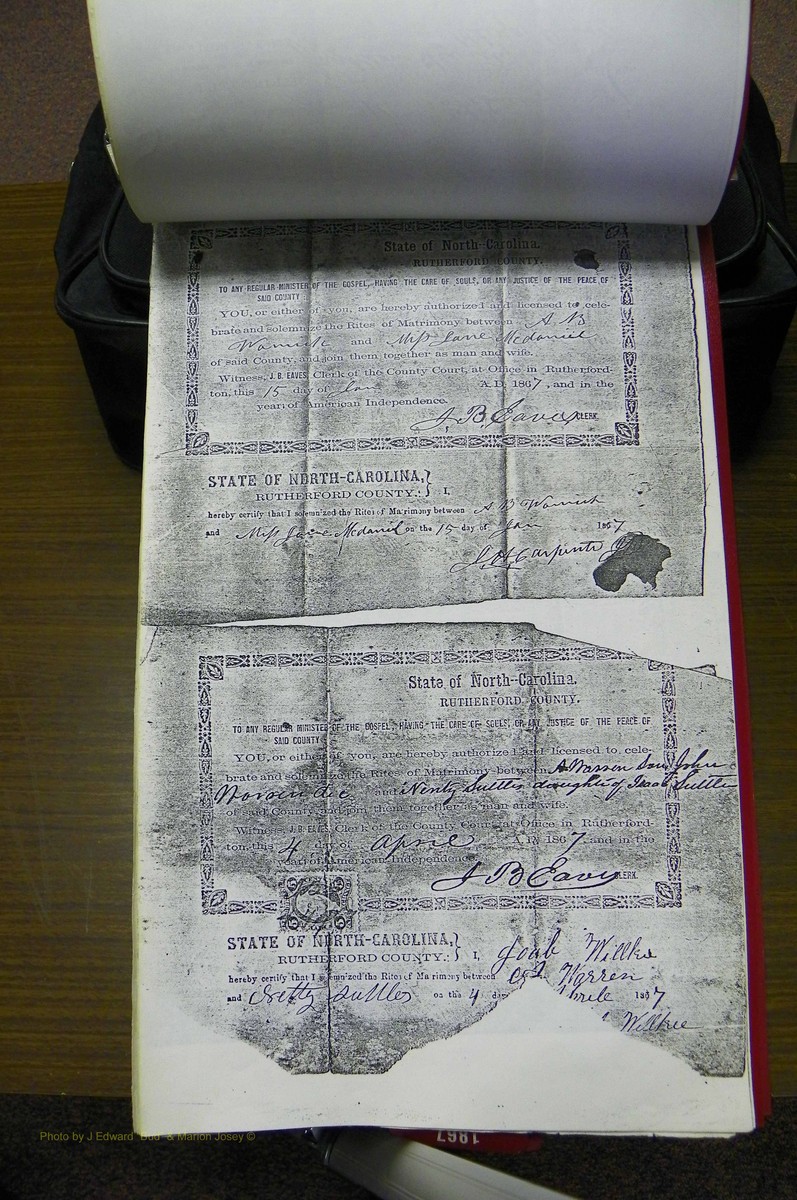 State of North-Carolina.
RUTHERFORD COUNTY.
TO ANY REGULAR MINISTER OF THE GOSPEL, HAVING THE CARE OF SOULS, OR ANY JUSTICE OF THE PEACE OF
SAID COUNTY
YOU, or either of you, are hereby authorized and licensed to cele-
brate and solemnize the Rites of Matrimony between A B
Womick and Miss Jane Mcdaniel
of said County, and join them together as man and wife.
Witness, J. B. EAVES, Clerk of the County Court, at Office in Rutherford-
ton, this 15 day of Jan A.D. 1867, and in the
year of American Independence.
J. B Eaves CLERK.
STATE OF NORTH-CAROLINA,
RUTHERFORD COUNTY. I,
hereby certify that I solemnized the Rites of Matrimony between A B Womick
and Miss Jane Mcdaniel on the 15 day of Jan 1867
Carpenter
State of North-Carolina.
RUTHERFORD COUNTY.
TO ANY REGULAR MINISTER OF THE GOSPEL, HAVING THE CARE OF SOULS, OR ANY JUSTICE OF THE PEACE OF
SAID COUNTY
YOU, or either of you, are hereby authorized and licensed to cele-
brate and solemnize the Rites of Matrimony between A Warren Son John
Warren and daughter of Isaac Suttles
of said County, and join them together as man and wife.
Witness, J. B. EAVES, Clerk of the County Court, at Office in Rutherford-
ton, this 4 day of Aprile A.D. 1867, and in the
year of American Independence.
J B Eaves CLERK.
STATE OF NORTH-CAROLINA,
RUTHERFORD COUNTY. I, Joab Wilkie
hereby certify that I solemnized the Rites of Matrimony between Warren
and Suttles on the 4 day Aprile 1867
Wilkie
1867
Photo by J Edward "Bud" & Marion Josey ©